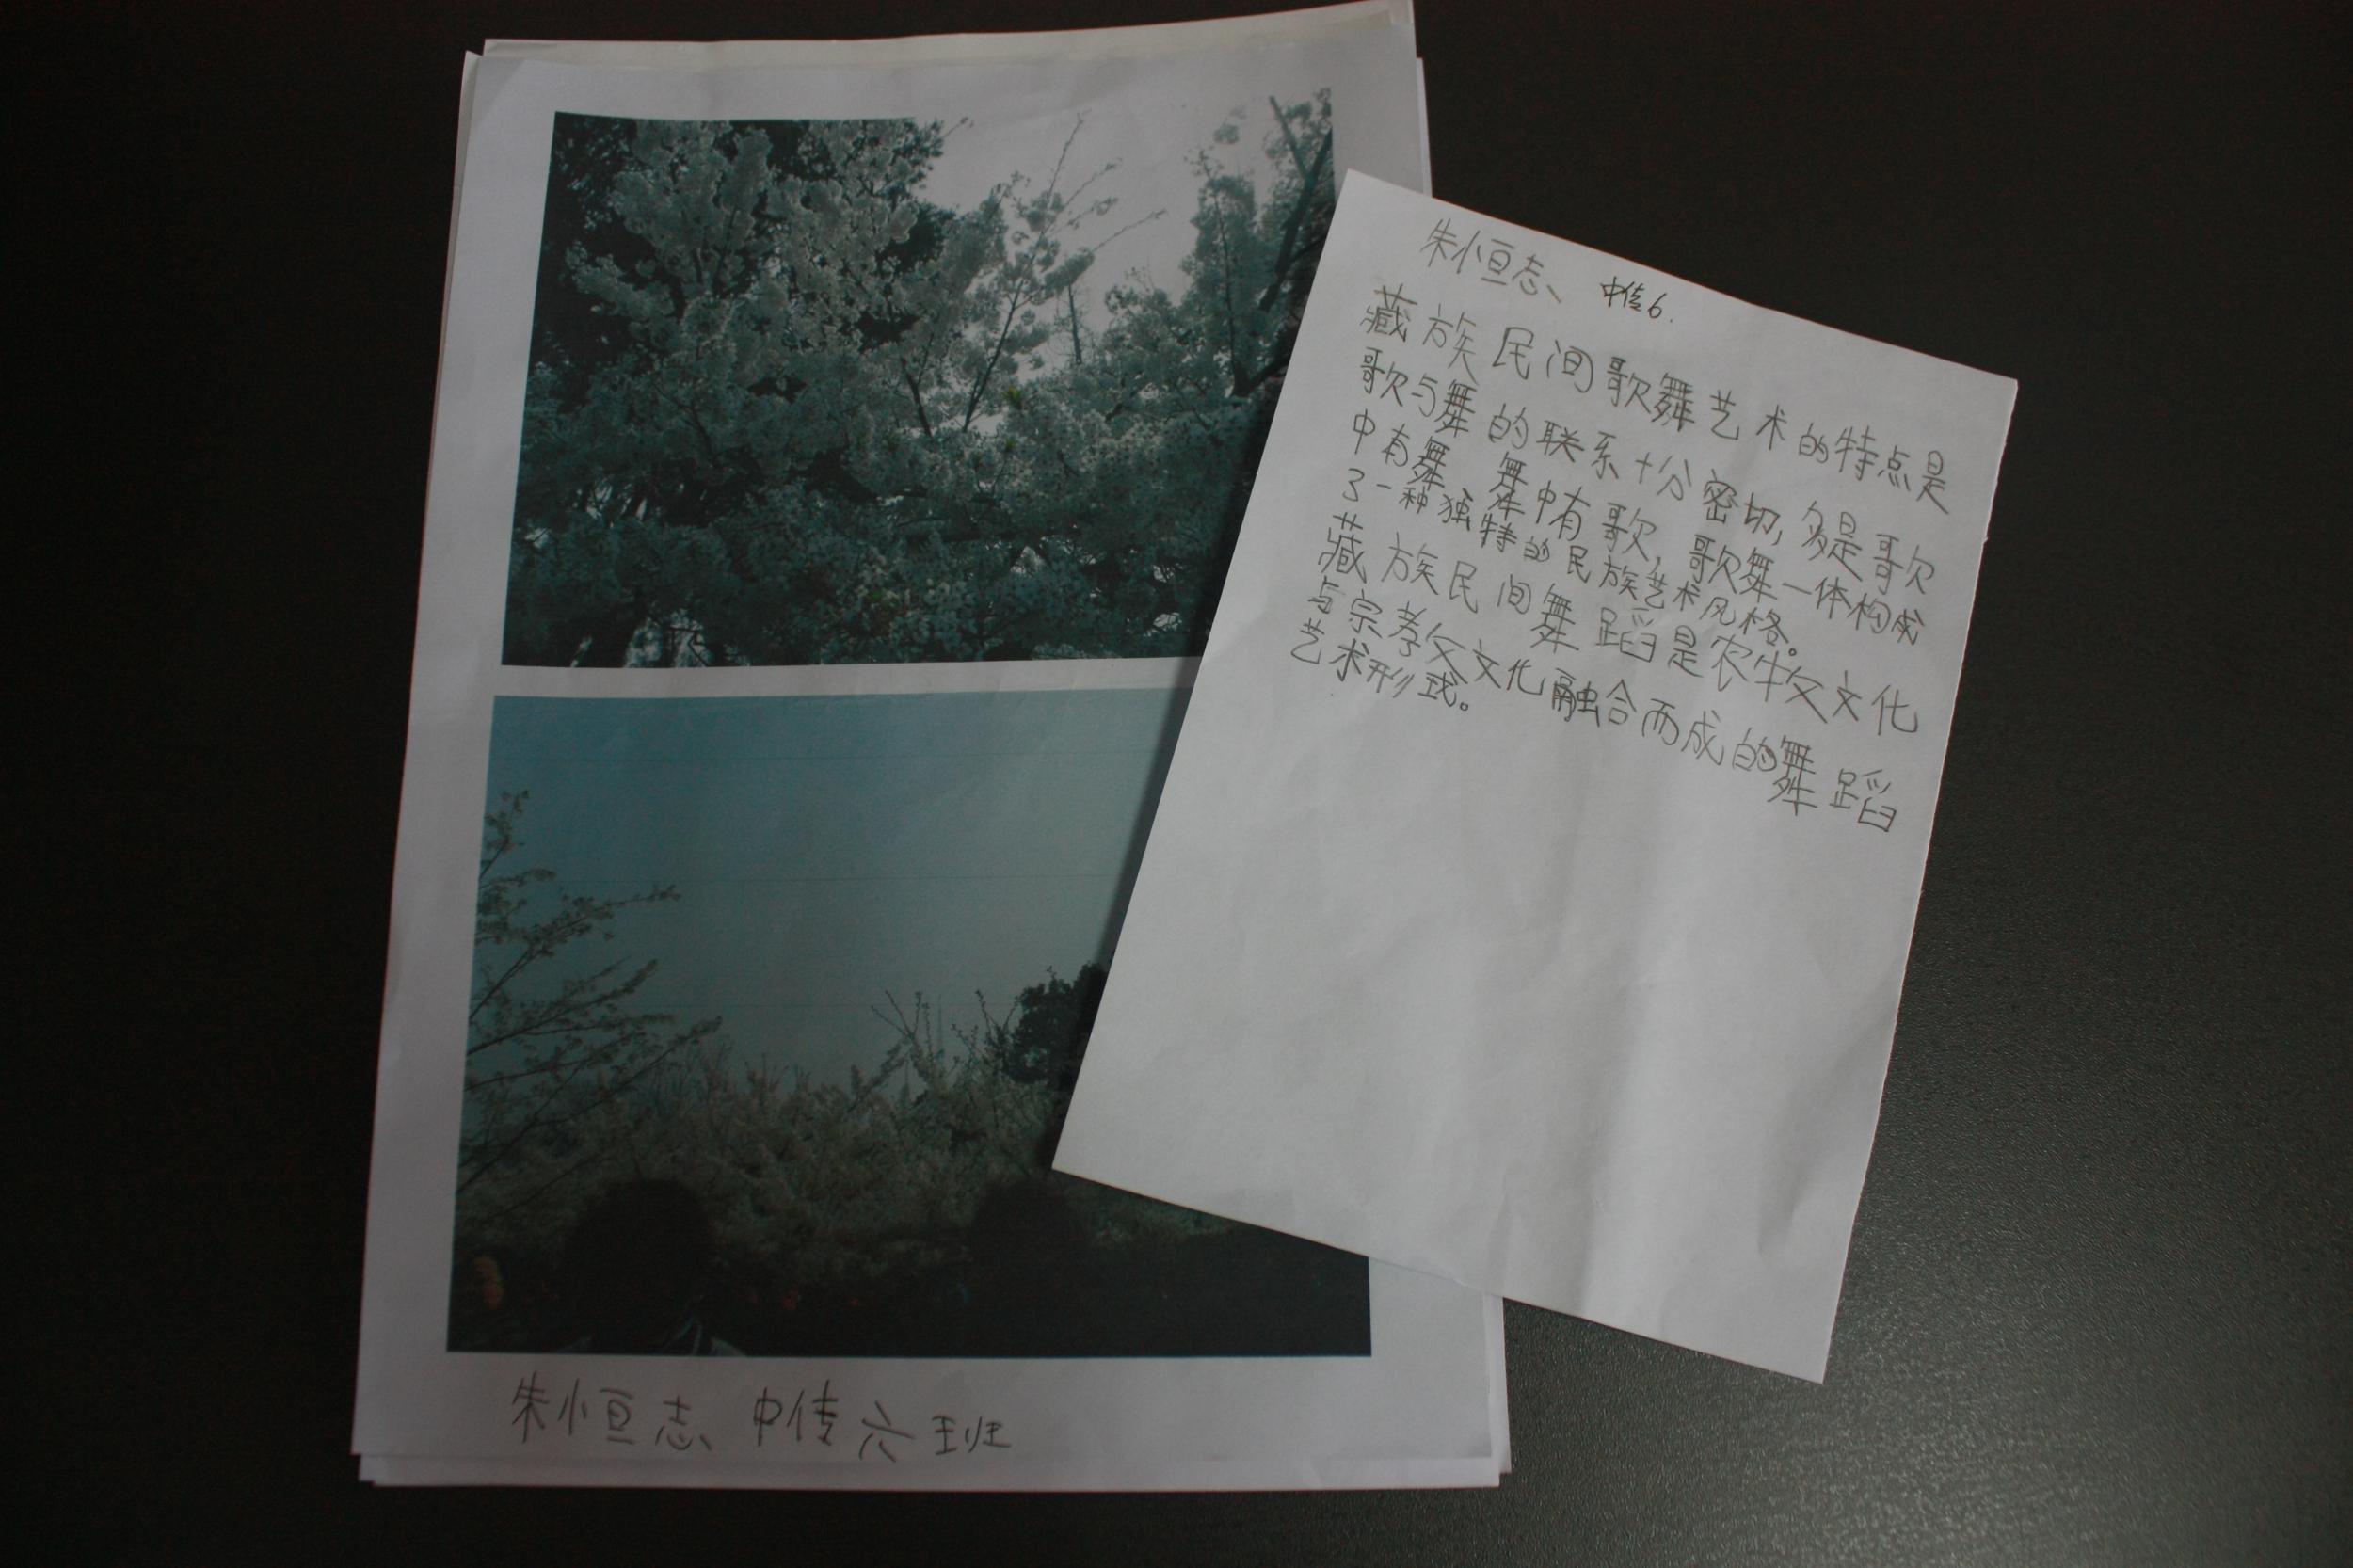 朱恒志 中传6.
藏族民间歌舞艺术的特点是
歌与舞的联系十分密切,多是歌
中有舞 舞中有歌,歌舞一体构成
了一种独特的民族艺术风格。
藏族民间舞蹈是农牧文化
与宗孝攵文化融合而成的舞蹈
艺术形式。
朱恒志 中传六班